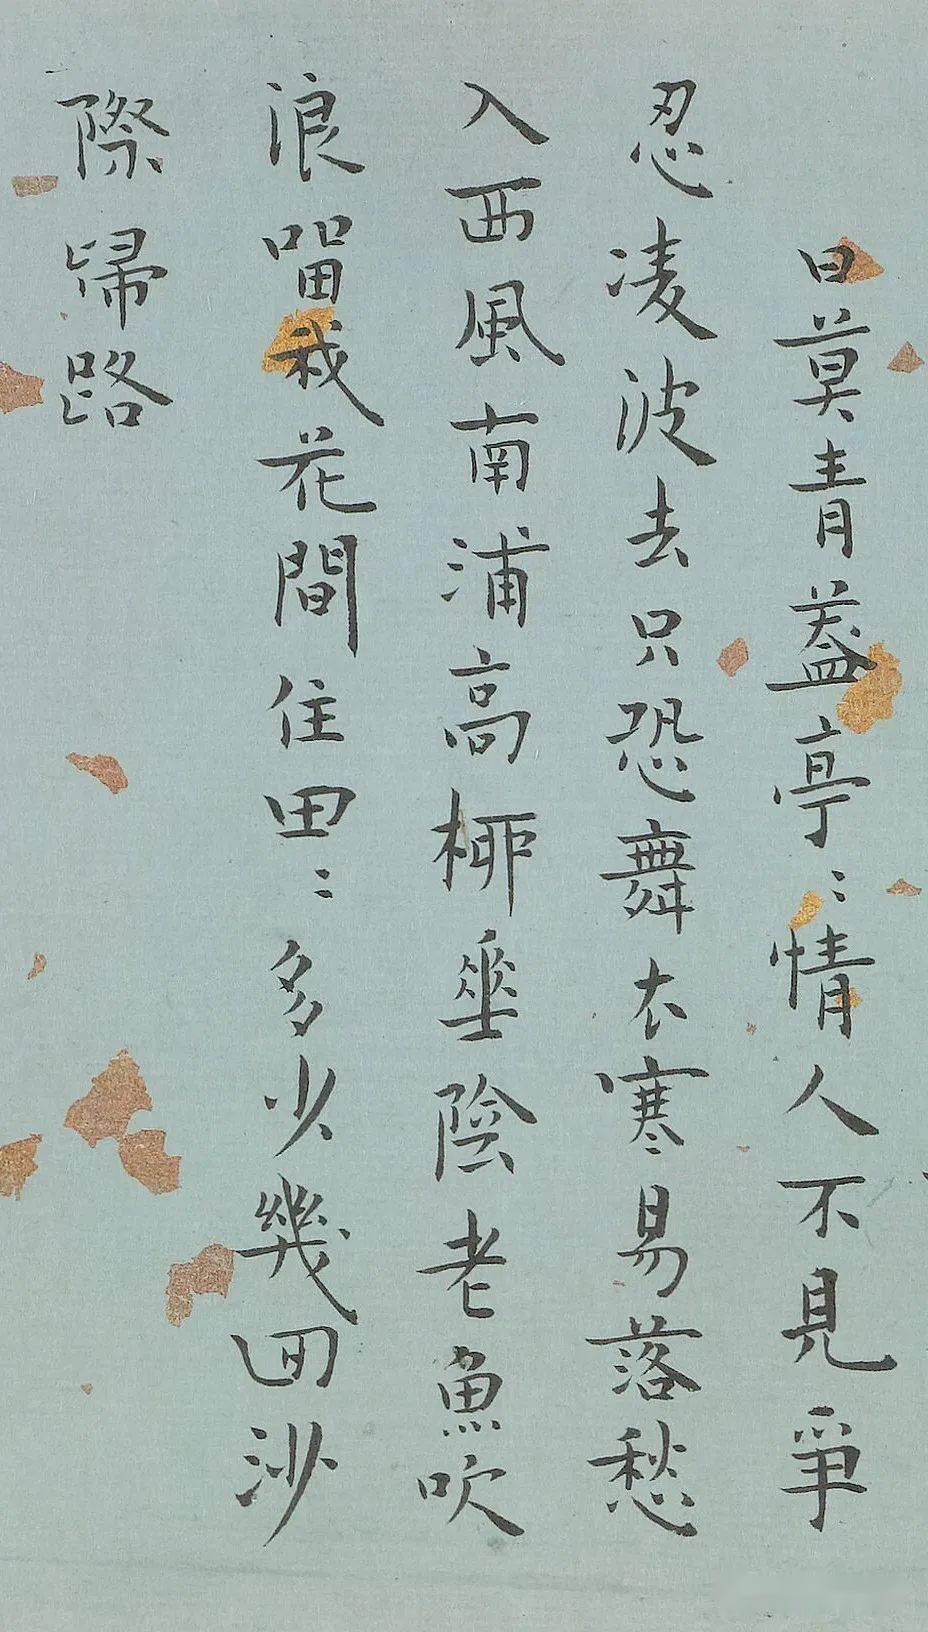 日莫青葢亭〻情人不見爭
忍凌波去只恐舞衣寒易落愁
入西風南浦高桺垂陰老魚吹
浪畱我花間住田〻多少幾回沙
際歸路